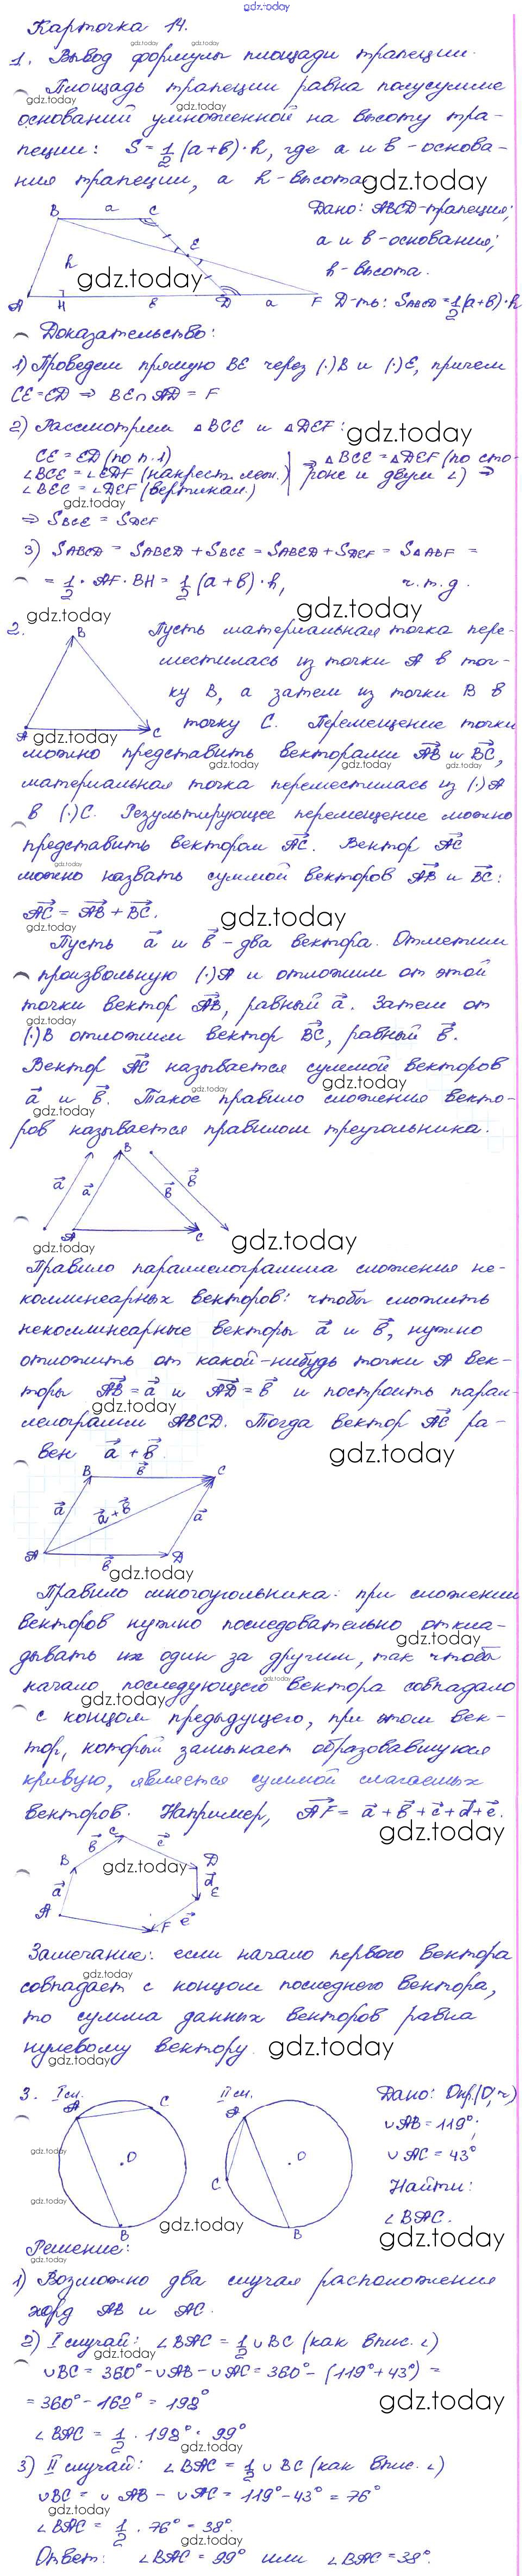 gdz.today
Карточка 14.
1. Вывод формулы площади трапеции.
Площадь трапеции равна полусумме
оснований умноженной на высоту тра-
пеции: S = 1/2 (a+b)·h, где a и b - основа-
ния трапеции, а h - высота.
Дано: ABCD - трапеция;
a и b - основания;
h - высота.
Д-ть: S ABCD = 1/2 (a+b)·h
Доказательство:
1) Проведем прямую BE через (·)B и (·)E, причем
CE = ED ⇒ BE ∩ AD = F
2) Рассмотрим △BCE и △DEF:
CE = ED (по п.1)
∠BCE = ∠EDF (накрест. леж.)
∠BEC = ∠DEF (вертикал.)
⇒ △BCE = △DEF (по сто-
роне и двум ∠) ⇒
⇒ S BCE = S DEF
3) S ABCD = S ABED + S BCE = S ABED + S DEF = S △ABF =
= 1/2 · AF · BH = 1/2 (a+b)·h, ч.т.д.
2. Пусть материальная точка пере-
местилась из точки A в точ-
ку B, а затем из точки B в
точку C. Перемещение точки
можно представить векторами AB и BC,
материальная точка переместилась из (·)A
в (·)C. Результирующее перемещение можно
представить вектором AC. Вектор AC
можно назвать суммой векторов AB и BC:
AC = AB + BC.
Пусть a и b - два вектора. Отметим
произвольную (·)A и отложим от этой
точки вектор AB, равный a. Затем от
(·)B отложим вектор BC, равный b.
Вектор AC называется суммой векторов
a и b. Такое правило сложения векто-
ров называется правилом треугольника.
Правило параллелограмма сложения не-
коллинеарных векторов: чтобы сложить
неколлинеарные векторы a и b, нужно
отложить от какой-нибудь точки A век-
торы AB = a и AD = b и построить парал-
лелограмм ABCD. Тогда вектор AC ра-
вен a + b.
Правило многоугольника: при сложении
векторов нужно последовательно откла-
дывать их один за другим, так чтобы
начало последующего вектора совпадало
с концом предыдущего, при этом век-
тор, который замыкает образовавшуюся
кривую, является суммой слагаемых
векторов. Например, AF = a + b + c + d + e.
Замечание: если начало первого вектора
совпадает с концом последнего вектора,
то сумма данных векторов равна
нулевому вектору.
3. I сл. II сл.
Дано: Окр.(O; r)
∪AB = 119°;
∪AC = 43°
Найти:
∠BAC.
Решение:
1) Возможно два случая расположения
хорд AB и AC.
2) I случай: ∠BAC = 1/2 ∪BC (как впис. ∠)
∪BC = 360° - ∪AB - ∪AC = 360° - (119° + 43°) =
= 360° - 162° = 198°
∠BAC = 1/2 · 198° = 99°
3) II случай: ∠BAC = 1/2 ∪BC (как впис. ∠)
∪BC = ∪AB - ∪AC = 119° - 43° = 76°
∠BAC = 1/2 · 76° = 38°.
Ответ: ∠BAC = 99° или ∠BAC = 38°.